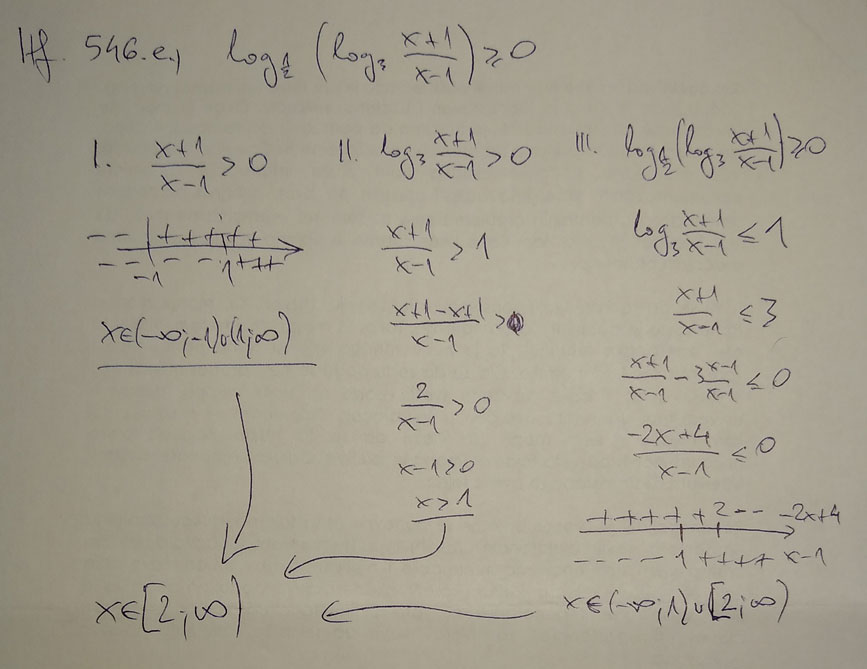 Hf. 546.e., log_{1/2} (log_3 (x+1)/(x-1)) ≥ 0
I. (x+1)/(x-1) > 0
-- | + + + + + +
-- -1 - - - 1 + + +
x∈(-∞;-1)∪(1;∞)
II. log_3 (x+1)/(x-1) > 0
(x+1)/(x-1) > 1
(x+1-x+1)/(x-1) > 0
2/(x-1) > 0
x-1>0
x>1
III. log_{1/2}(log_3 (x+1)/(x-1)) ≥ 0
log_3 (x+1)/(x-1) ≤ 1
(x+1)/(x-1) ≤ 3
(x+1)/(x-1) - 3(x-1)/(x-1) ≤ 0
(-2x+4)/(x-1) ≤ 0
+ + + + + + 2 - - -2x+4
- - - - 1 + + + + x-1
x∈(-∞;1)∪[2;∞)
x∈[2;∞)